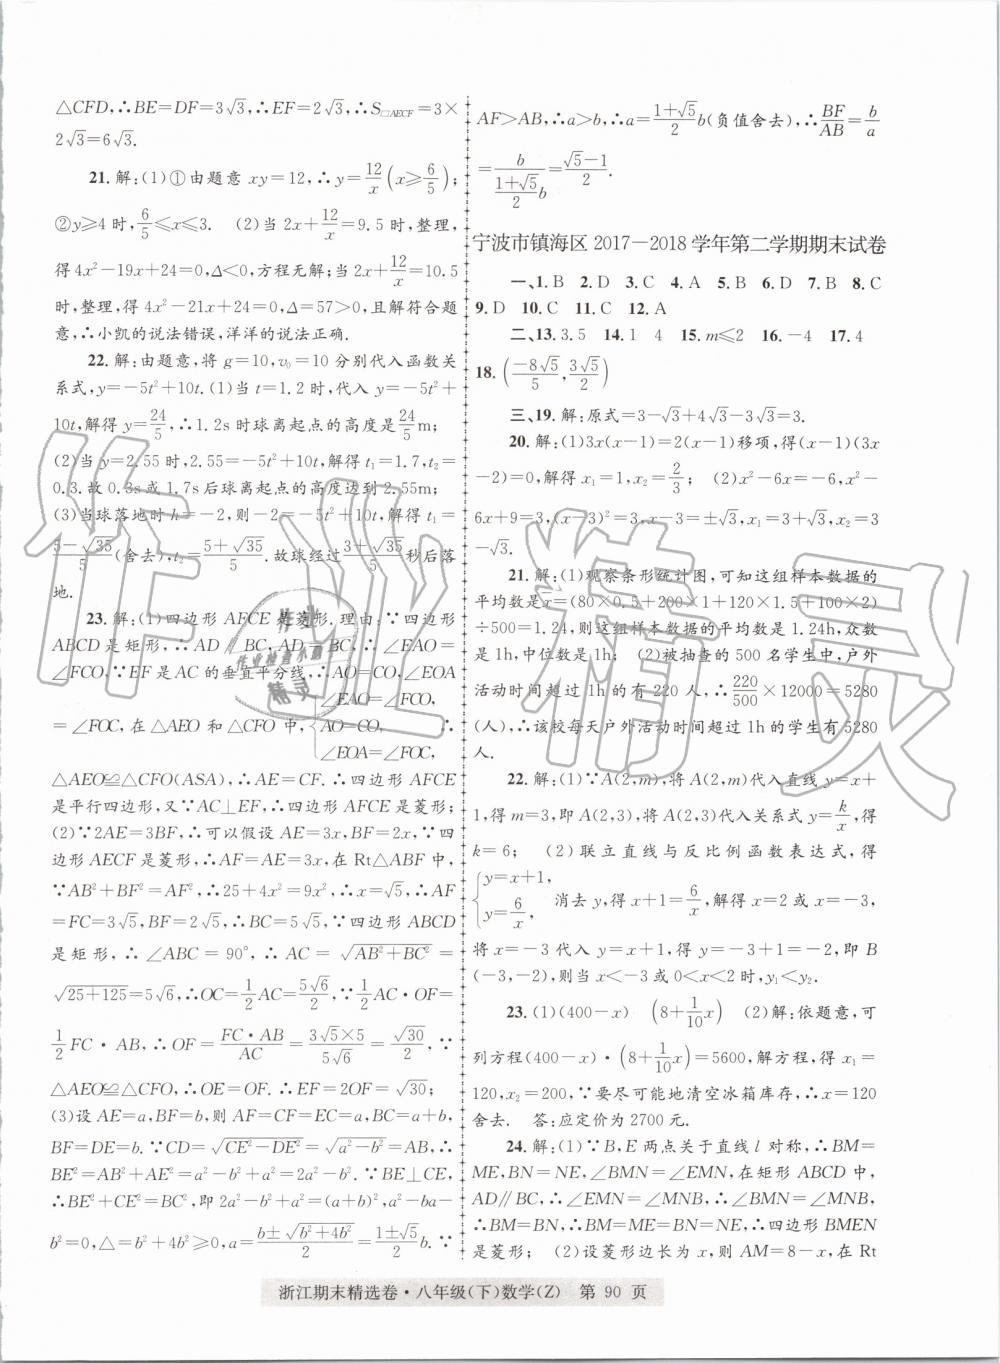 △CFD,∴BE=DF=3√3,∴EF=2√3,∴S□AECF=3×
2√3=6√3.
21. 解:(1)①由题意 xy=12,∴y=12/x(x≥6/5);
②y≥4时,6/5≤x≤3. (2)当2x+12/x=9.5时,整理,
得4x²-19x+24=0,Δ<0,方程无解;当2x+12/x=10.5
时,整理,得4x²-21x+24=0,Δ=57>0,且解符合题
意,∴小凯的说法错误,洋洋的说法正确.
22. 解:由题意,将g=10,v₀=10分别代入函数关
系式,y=-5t²+10t.(1)当t=1.2时,代入y=-5t²+
10t,解得y=24/5,∴1.2s时球离起点的高度是24/5m;
(2)当y=2.55时,2.55=-5t²+10t,解得t₁=1.7,t₂=
0.3.故0.3s或1.7s后球离起点的高度达到2.55m;
(3)当球落地时h=-2,则-2=-5t²+10t,解得t₁=
(5-√35)/5(舍去),t₂=(5+√35)/5.故球经过(5+√35)/5秒后落
地.
23. 解:(1)四边形AFCE是菱形.理由:∵四边形
ABCD是矩形,∴AD∥BC,AD=BC,∴∠EAO=
∠FCO,∵EF是AC的垂直平分线,∴AO=CO,∠EOA
=∠FOC,在△AEO和△CFO中,{∠EAO=∠FCO, AO=CO, ∠EOA=∠FOC, ∴
△AEO≌△CFO(ASA),∴AE=CF.∴四边形AFCE
是平行四边形,又∵AC⊥EF,∴四边形AFCE是菱形;
(2)∵2AE=3BF,∴可以假设AE=3x,BF=2x,∵四
边形AECF是菱形,∴AF=AE=3x,在Rt△ABF中,
∵AB²+BF²=AF²,∴25+4x²=9x²,∴x=√5,∴AF
=FC=3√5,BF=2√5,∴BC=5√5,∵四边形ABCD
是矩形,∴∠ABC=90°,∴AC=√(AB²+BC²)=
√(25+125)=5√6,∴OC=1/2AC=5√6/2,∵1/2AC·OF=
1/2FC·AB,∴OF=FC·AB/AC=3√5×5/5√6=√30/2,∵
△AEO≌△CFO,∴OE=OF.∴EF=2OF=√30;
(3)设AE=a,BF=b,则AF=CF=EC=a,BC=a+b,
BF=DE=b.∵CD=√(CE²-DE²)=√(a²-b²)=AB,∴
BE²=AB²+AE²=a²-b²+a²=2a²-b².∵BE⊥CE,
∴BE²+CE²=BC²,即2a²-b²+a²=(a+b)²,a²-ba-
b²=0,△=b²+4b²≥0,a=(b±√(b²+4b²))/2=(1±√5)/2b.∵
AF>AB,∴a>b,∴a=(1+√5)/2b(负值舍去),∴BF/AB=b/a
=b/((1+√5)/2b)=(√5-1)/2.
宁波市镇海区2017-2018学年第二学期期末试卷
一、1. B 2. D 3. C 4. A 5. B 6. D 7. B 8. C
9. D 10. C 11. C 12. A
二、13. 3.5 14. 1 4 15. m≤2 16. -4 17. 4
18. (-8√5/5,3√5/2)
三、19. 解:原式=3-√3+4√3-3√3=3.
20. 解:(1)3x(x-1)=2(x-1)移项,得(x-1)(3x
-2)=0,解得x₁=1,x₂=2/3; (2)x²-6x=-6,x²-
6x+9=3,(x-3)²=3,x-3=±√3,x₁=3+√3,x₂=3
-√3.
21. 解:(1)观察条形统计图,可知这组样本数据的
平均数是x̄=(80×0.5+200×1+120×1.5+100×2)
÷500=1.24,则这组样本数据的平均数是1.24h,众数
是1h,中位数是1h; (2)被抽查的500名学生中,户外
活动时间超过1h的有220人,∴220/500×12000=5280
(人),∴该校每天户外活动时间超过1h的学生有5280
人.
22. 解:(1)∵A(2,m),将A(2,m)代入直线y=x+
1,得m=3,即A(2,3),将A(2,3)代入关系式y=k/x,得
k=6; (2)联立直线与反比例函数表达式,得
{y=x+1, y=6/x, 消去y,得x+1=6/x,解得x=2或x=-3,
将x=-3代入y=x+1,得y=-3+1=-2,即B
(-3,-2),则当x<-3或0<x<2时,y₁<y₂.
23. (1)(400-x) (8+1/10x) (2)解:依题意,可
列方程(400-x)·(8+1/10x)=5600,解方程,得x₁=
120,x₂=200,∵要尽可能地清空冰箱库存,∴x=120
舍去. 答:应定价为2700元.
24. 解:(1)∵B,E两点关于直线l对称,∴BM=
ME,BN=NE,∠BMN=∠EMN,在矩形ABCD中,
AD∥BC,∴∠EMN=∠MNB,∴∠BMN=∠MNB,
∴BM=BN,∴BM=ME=BN=NE,∴四边形BMEN
是菱形; (2)设菱形边长为x,则AM=8-x,在Rt
浙江期末精选卷·八年级(下)数学(Z) 第 90 页
作业精灵
作业检查小帮手
精灵